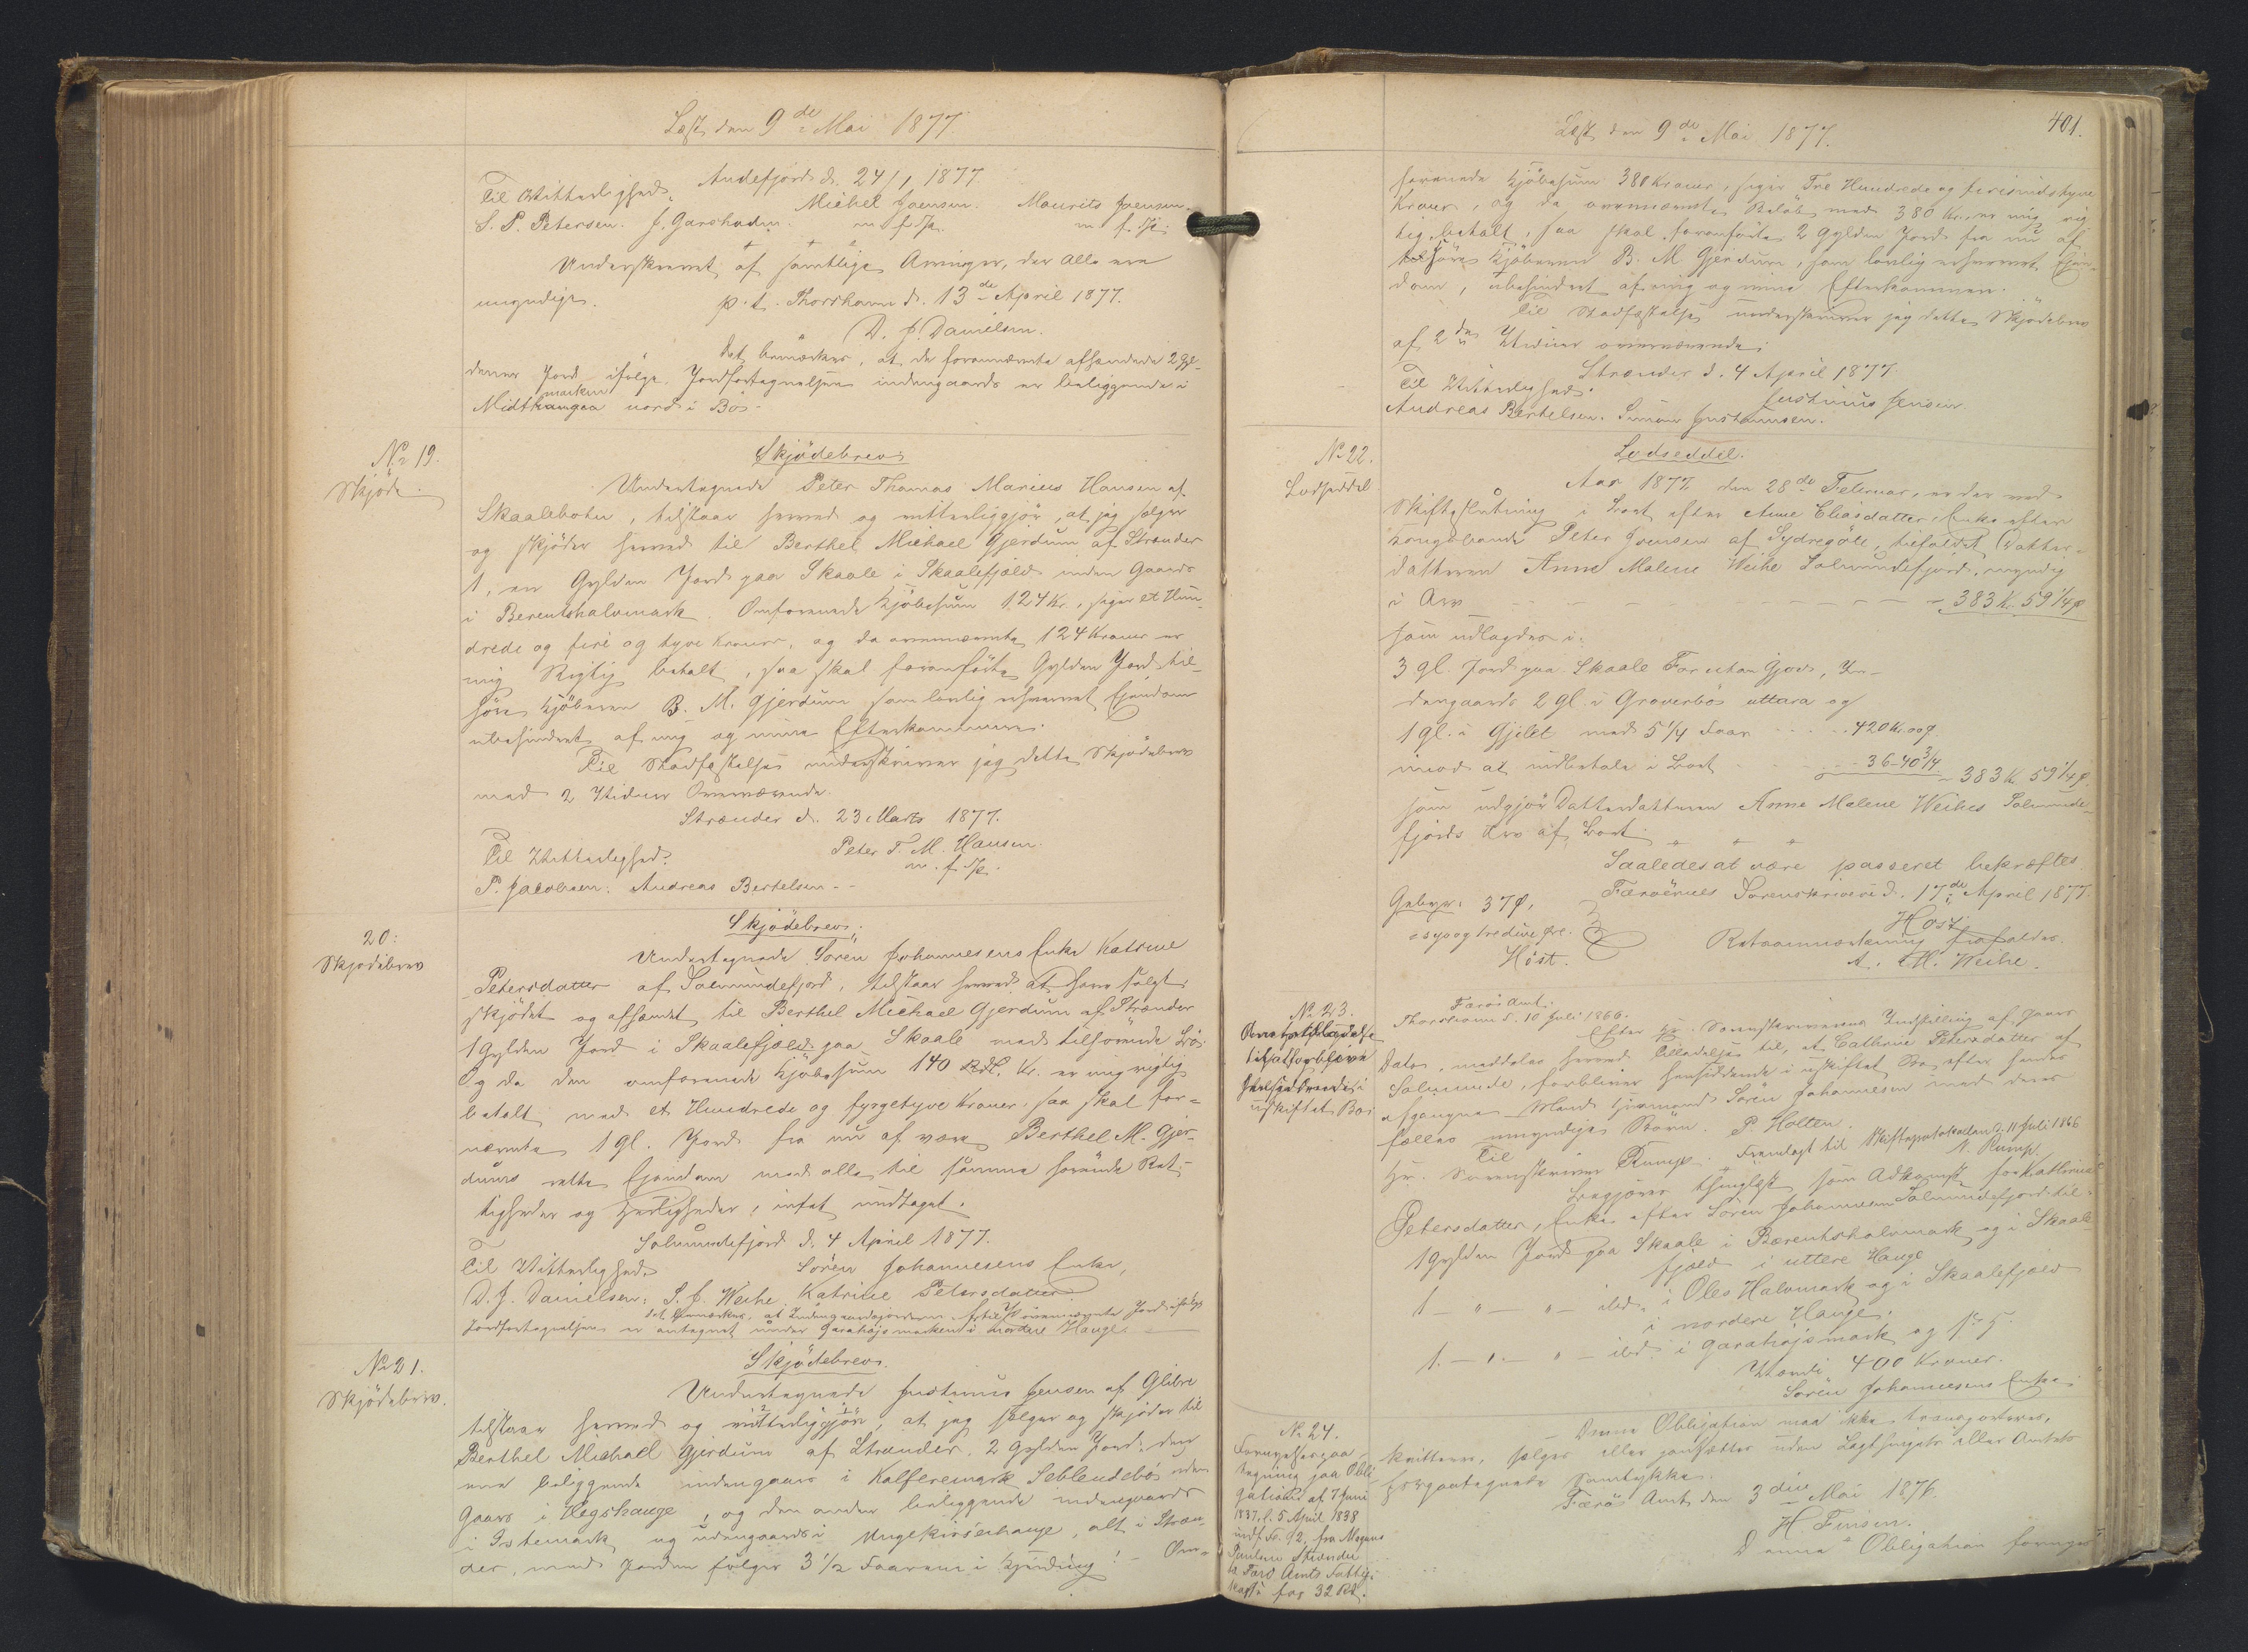 Læst den 9de Mai 1877.
Andefjord d. 24/1 1877
Til Vitterlighed.
Michel Joensen. Maurits Joensen.
S. P. Petersen. J. Garshodn. m. f. P. m. f. P.
Underskrevet af samtlige Arvinger, der alle ere
myndige. p. t. Thorshavn d. 13de April 1877.
D. J. Danielsen.
Det bemærkes, at de forannævnte afhændede 2 Gyl-
dener Jord ifølge Jordfortegnelsen indengaards er beliggende i
marken
Midthaugaa nord i Bø.
No 19.
Skjöde.
Skjödebrev
Undertegnede Peter Thomas Marius Hansen af
Skaalebotn, tilstaar herved og vitterliggjör, at jeg sælger
og skjöder herved til Berthel Michael Gjerdum af Strænder
1, en Gylden Jord paa Skaale i Skaalefjæld uden Gaards
i Berentshalvmark. Omforenede Kjöbesum 124 Kr., siger et Hun-
drede og fire og tyve Kroner, og da ovennævnte 124 Kroner er
mig Rigtig betalt, saa skal foranførte Gylden Jord til-
höre Kjöberen B. M. Gjerdum som lovlig erhvervet Ejendom
ubehindret af mig og mine Efterkommere.
Til Stadfæstelse underskriver jeg dette Skjödebrev
med 2 Vidner Overværende.
Strænder d. 23 Marts 1877.
Til Vitterlighed. Peter T. M. Hansen.
m. f. P.
P. Jacobsen. Andreas Bertelsen.
20.
Skjödebrev
Skjödebrev.
Undertegnede Sören Johannesens Enke Katrine
Petersdatter af Salmundefjord, tilstaar herved at have solgt,
skjödet og afhændet til Berthel Michael Gjerdum af Strænder
1 Gylden Jord i Skaalefjæld paa Skaale med tilhörende Lod.
Og da den omforenede Kjöbesum 140 Rdl. Kr. er mig rigtig
betalt med et Hundrede og fyrgetyve Kroner, saa skal for-
nævnte 1 gl. Jord fra nu af være Berthel M. Gjer-
dums rette Ejendom med alle til samme hörende Ret-
tigheder og Herligheder, intet undtaget.
Salmundefjord d. 4 April 1877.
Til Vitterlighed Sören Johannesens Enke,
D. J. Danielsen. S. J. Weihe Katrine Petersdatter
Det bemærkes, at Indengaardsjorden ovennævnte Jord ifølge
Jordfortegnelsen er antegnet under Garahøjsmarken i nordere Hauge.
No 21.
Skjödebrev.
Skjödebrev.
Undertegnede Justinus Jensen af Glibre
tilstaar herved og vitterliggjör, at jeg sælger og skjöder til
Berthel Michael Gjerdum af Strænder, 2 Gylden Jord, den
ene beliggende indengaars i Kalferemark Seblendebö uden
Gaars i Hegshauge, og den anden beliggende indengaards
i Istemark og udengaards i Ungekirsehauge, alt i Stræn-
der, med Jorden fölger 3 1/2 Faareme i Kjending! Om-
401.
Læst den 9de Mai 1877.
forenede Kjöbesum 380 Kroner, siger Tre Hundrede og firesindstyve
Kroner, og da ovennævnte Beløb med 380 Kr. er mig rig-
tig betalt, saa skal foranførte 2 Gylden Jord fra nu af
tilhöre Kjöberen B. M Gjerdum, som lovlig erhvervet Ejen-
dom, ubehindret af mig og mine Efterkommere.
Til Stadfæstelse underskriver jeg dette Skjödebrev
af 2de Vidner overværende.
Strænder d. 4 April 1877.
Til Vitterlighed. Justinus Jensen
Andreas Bertelsen. Simon Justinussen.
No 22.
Lodseddel
Lodseddel.
Aar 1877 den 28de Februar, er der ved
Skifteslutning i Boet efter Anne Eliasdatter, Enke efter
Kongsbonde Peter Joensen af Sydregöte, tilfaldet Datter-
datteren Anne Malene Weihe Salmundefjord, myndig
i Arv 383 K. 59 1/4 ø
som udlagdes i:
3 gl. Jord paa Skaale For utan Gjov, In-
dengaards 2 gl. i Groverbös uttara og
1 gl. i Gjilet med 5 1/4 Faar 420 Kr. 00 ø.
imod at indbetale i Boet 36-40 3/4 383 K 59 1/4 ø.
som udgjör Datterdatteren Anne Malene Weihes Salmunde-
fjords Arv af Boet.
Saaledes at være passeret bekræftes.
Færöernes Sorenskriveri d. 17de April 1877.
Höst
Gebyr: 37 ø,
syv og tredive Øre. Retsanmærkning frafaldes.
Höst. A. M. Weihe.
No 23.
Amtstilladelse
til at forblive
hensiddende i
uskiftet Bo.
Færö Amt.
Thorshavn d. 10 Juli 1866.
Efter Hr. Sorenskriverens Indstilling af Gaars
Dato, meddeles herved Tilladelse til, at Cathrine Petersdatter af
Salmunde, forbliver hensiddende i uskiftet Bo efter hendes
afgangne Mand Sören Johannesen med deres
fælles umyndige Börn. P. Holten.
Til
Hr. Sorenskriver Rump. Fremlagt til Skifteprotokollen d. 11 Juli 1866
N. Rump.
Begjæres thinglæst som Adkomst for Kathrine
Petersdatter, Enke efter Sören Johannesen Salmundefjord til:
1 Gylden Jord paa Skaale i Bærentshalvmark og i Skaale
fjæld i uttere Hauge
1 — " — " — ibd. i Oles Halvmark og i Skaalefjæld
i nordere Hauge.
1. — " — " — ibd. i Garahøjsmark og
Værdi 400 Kroner.
Sören Johannesens Enke
No 24.
Fornyelsespaa-
tegning paa Obli-
gation af 7 Juni
1837, l. 5 April 1838
indf. Fo. 92, fra Mogens
Paulsen Strænder
til Færö Amts Fattig-
kasse for 32 Rd.
Denne Obligation maa ikke transporteres,
kvitteres, sælges eller pantsættes uden Lagthingets eller Amtets
forpaategnede Samtykke.
Færö Amt, den 3die Mai 1876.
H. Finsen.
Denne Obligation fornyes